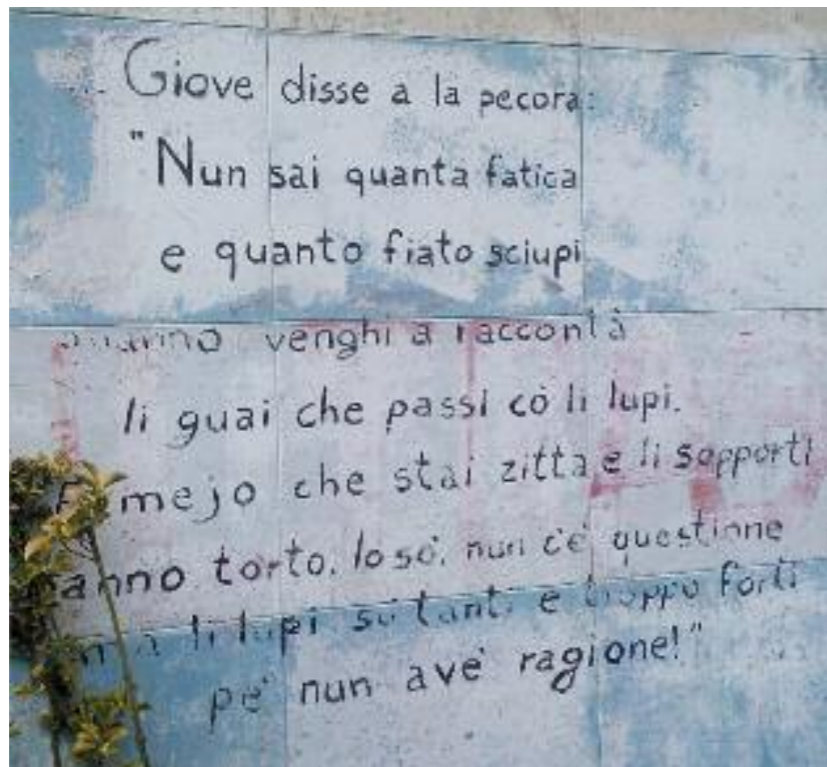 Giove disse a la pecora:
"Nun sai quanta fatica
e quanto fiato sciupi
venghi a raccontà
li guai che passi cò li lupi.
È mejo che stai zitta e li sopporti
torto, lo sò, nun c'è questione
ma li lupi sò tanti e troppo forti
pe' nun avé ragione!"